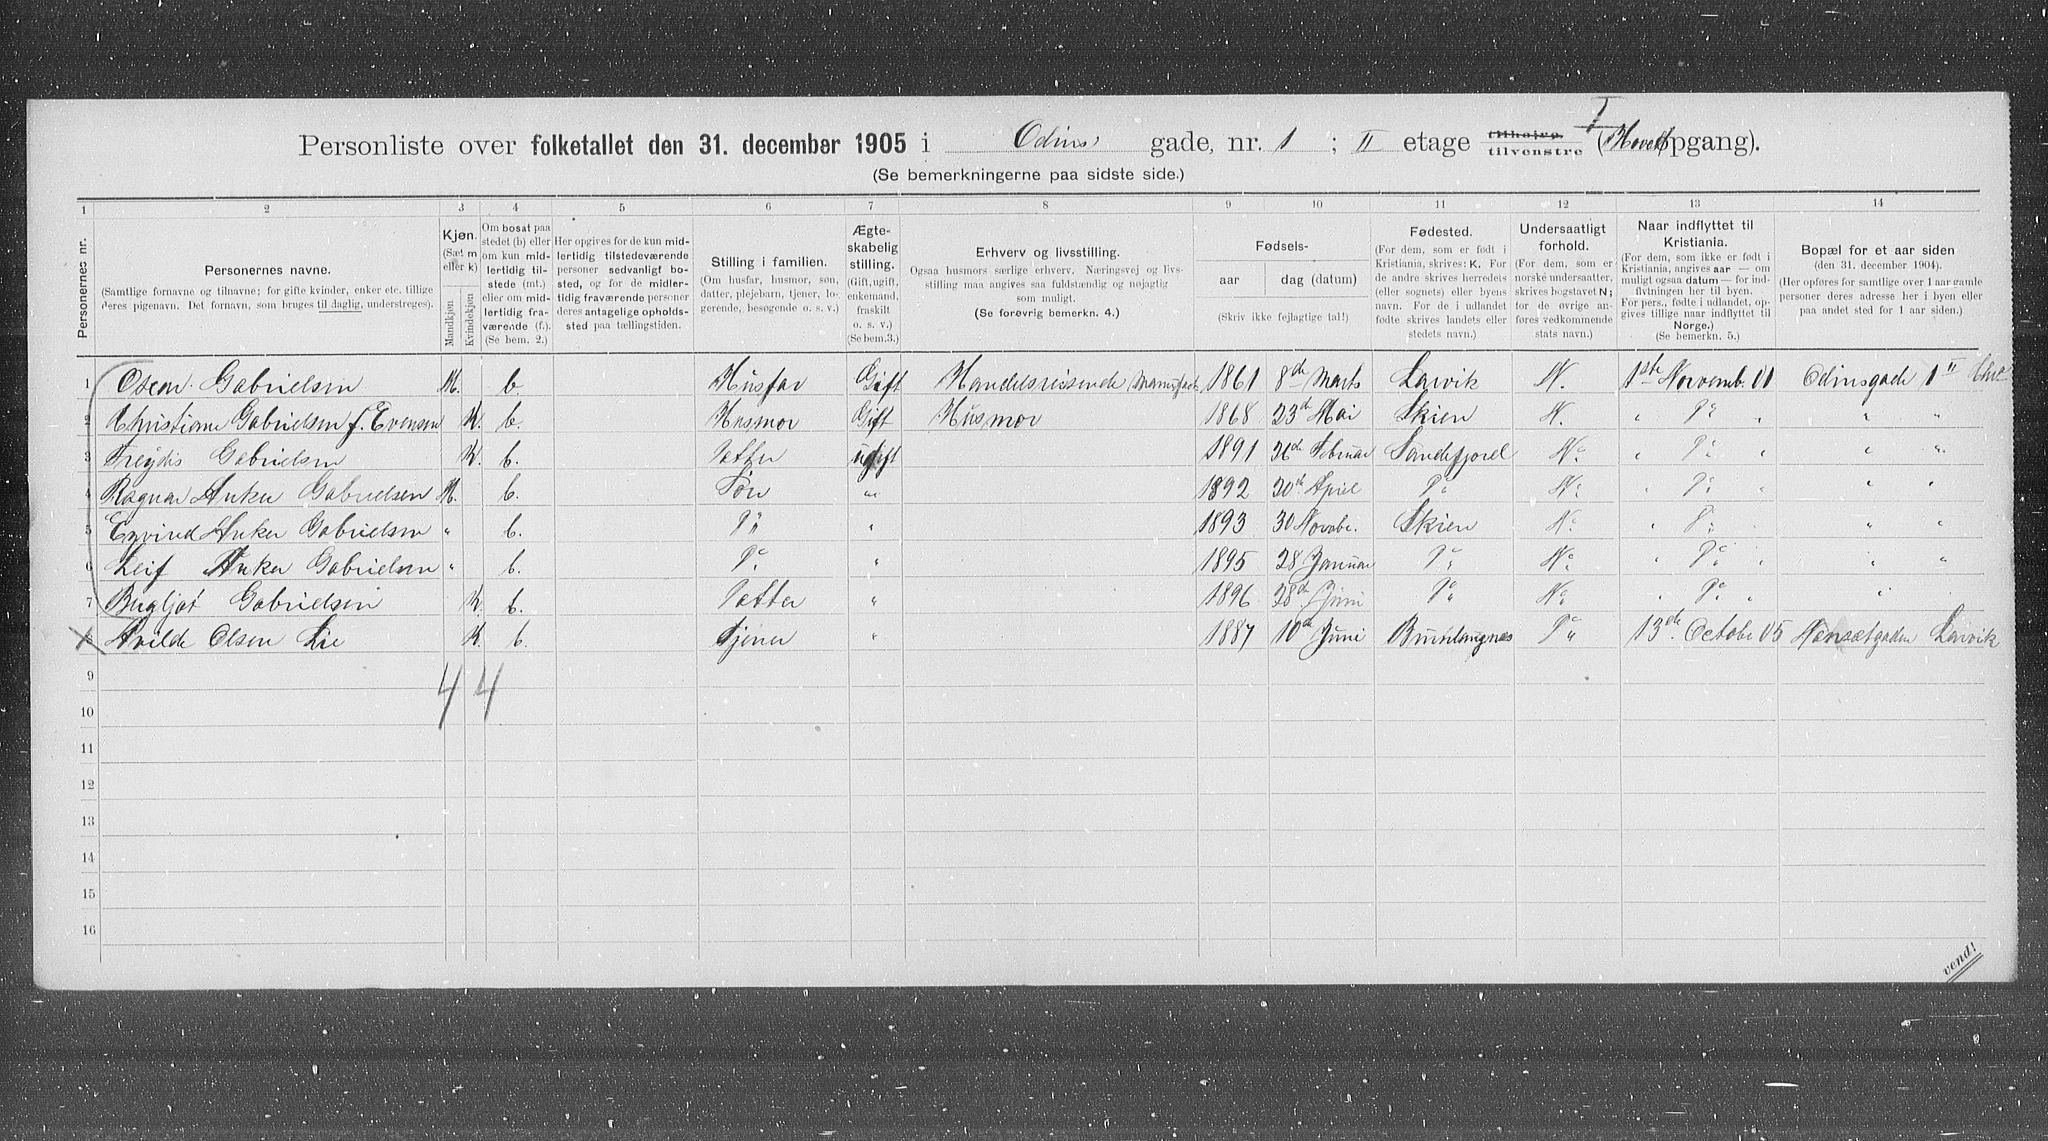 Personliste over folketallet den 31. december 1905 i Odins gade, nr. 1 ; II etage tilhøire. tilvenstre I (Hovedopgang).
(Se bemerkningerne paa sidste side.)
1 2 3 4 5 6 7 8 9 10 11 12 13 14
Personernes nr.
Personernes navne.
(Samtlige fornavne og tilnavne; for gifte kvinder, enker etc. tillige
deres pigenavn. Det fornavn, som bruges til daglig, understreges).
Kjøn.
(Sæt m
eller k)
Mandkjøn
Kvindekjøn
Om bosat paa
stedet (b) eller
om kun mid-
lertidig til-
stede (mt.)
eller om mid-
lertidig fra-
værende (f.).
(Se bem. 2.)
Her opgives for de kun mid-
lertidig tilstedeværende
personer sedvanligt bo-
sted, og for de midler-
tidig fraværende personer
deres antagelige opholds-
sted paa tællingstiden.
Stilling i familien.
(Om husfar, husmor, søn,
datter, plejebarn, tjener, lo-
gerende, besøgende o. s. v.)
Ægte-
skabelig
stilling.
(Gift, ugift,
enkemand,
fraskilt
o. s. v.)
(Se bem.3.)
Erhverv og livsstilling.
Ogsaa husmors særlige erhverv. Næringsvej og livs-
stilling maa angives saa fuldstændig og nøjagtig
som muligt.
(Se forøvrig bemerkn. 4.)
Fødsels-
aar dag (datum)
(Skriv ikke fejlagtige tal!)
Fødested.
(For dem, som er født i
Kristiania, skrives: K. For
de andre skrives herredets
(eller sognets) eller byens
navn. For de i udlandet
fødte skrives landets eller
stedets navn.)
Undersaatligt
forhold.
(For dem, som er
norske undersaatter,
skrives bogstavet N;
for de øvrige an-
føres vedkommende
stats navn.)
Naar indflyttet til
Kristiania.
(For dem, som ikke er født i
Kristiania, angives aar — om
muligt ogsaa datum — for ind-
flytningen her til byen.
For pers., fødte i udlandet, op-
gives tillige naar indflyttet til
Norge.)
(Se bemerkn. 5.)
Bopæl for et aar siden
(den 31. december 1904).
(Her opføres for samtlige over 1 aar gamle
personer deres adresse her i byen eller
paa andet sted for 1 aar siden.)
1 Oscar Gabrielsen M. b. Husfar Gift Handelsreisende Manufact. 1861 8de Marts Larvik N. 1ste Novemb. 01 Odinsgade 1 II Chra
2 Christiane Gabrielsen f. Evensen K. b. Husmor Gift Husmor 1868 23d Mai Skien N. " Do " " "
3 Freydis Gabrielsen K. b. Datter ugift 1891 26de Februar Sandefjord No " Do " " "
4 Ragnar Anker Gabrielsen M. b. Søn " 1892 20de April Do No " Do " " "
5 Eyvind Anker Gabrielsen " b. Do " 1893 30 Novbr. Skien No " Do " " "
6 Leif Anker Gabrielsen " b. Do " 1895 28 Januar Do No " Do " " "
7 Bergljot Gabrielsen K. b. Datter " 1896 28de Juni Do No " Do " "
X 8 Hvilde Olsen Lie K. b. Tjener " 1887 10de Juni Brunlangnæs Do 13de October 05 Nansetgaden Larvik
9 4 4
10
11
12
13
14
15
16
vend!